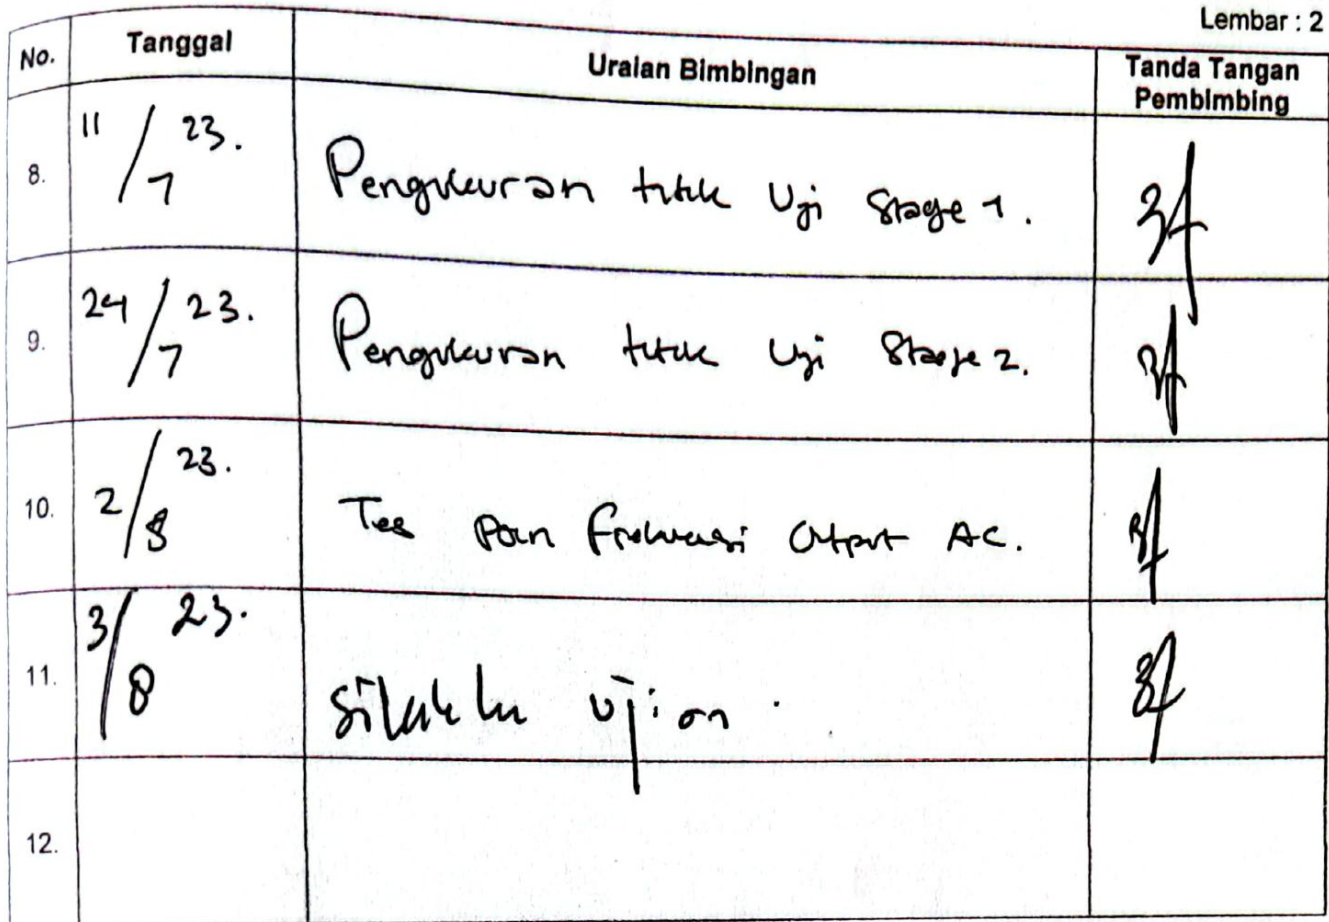 Lembar : 2
No. Tanggal Uraian Bimbingan Tanda Tangan Pembimbing
8. 11/7 23. Pengukuran titik Uji Stage 1.
9. 24/7 23. Pengukuran titik Uji Stage 2.
10. 2/8 23. Tes Frekuensi Output AC.
11. 3/8 23. Silahkan ujian.
12.